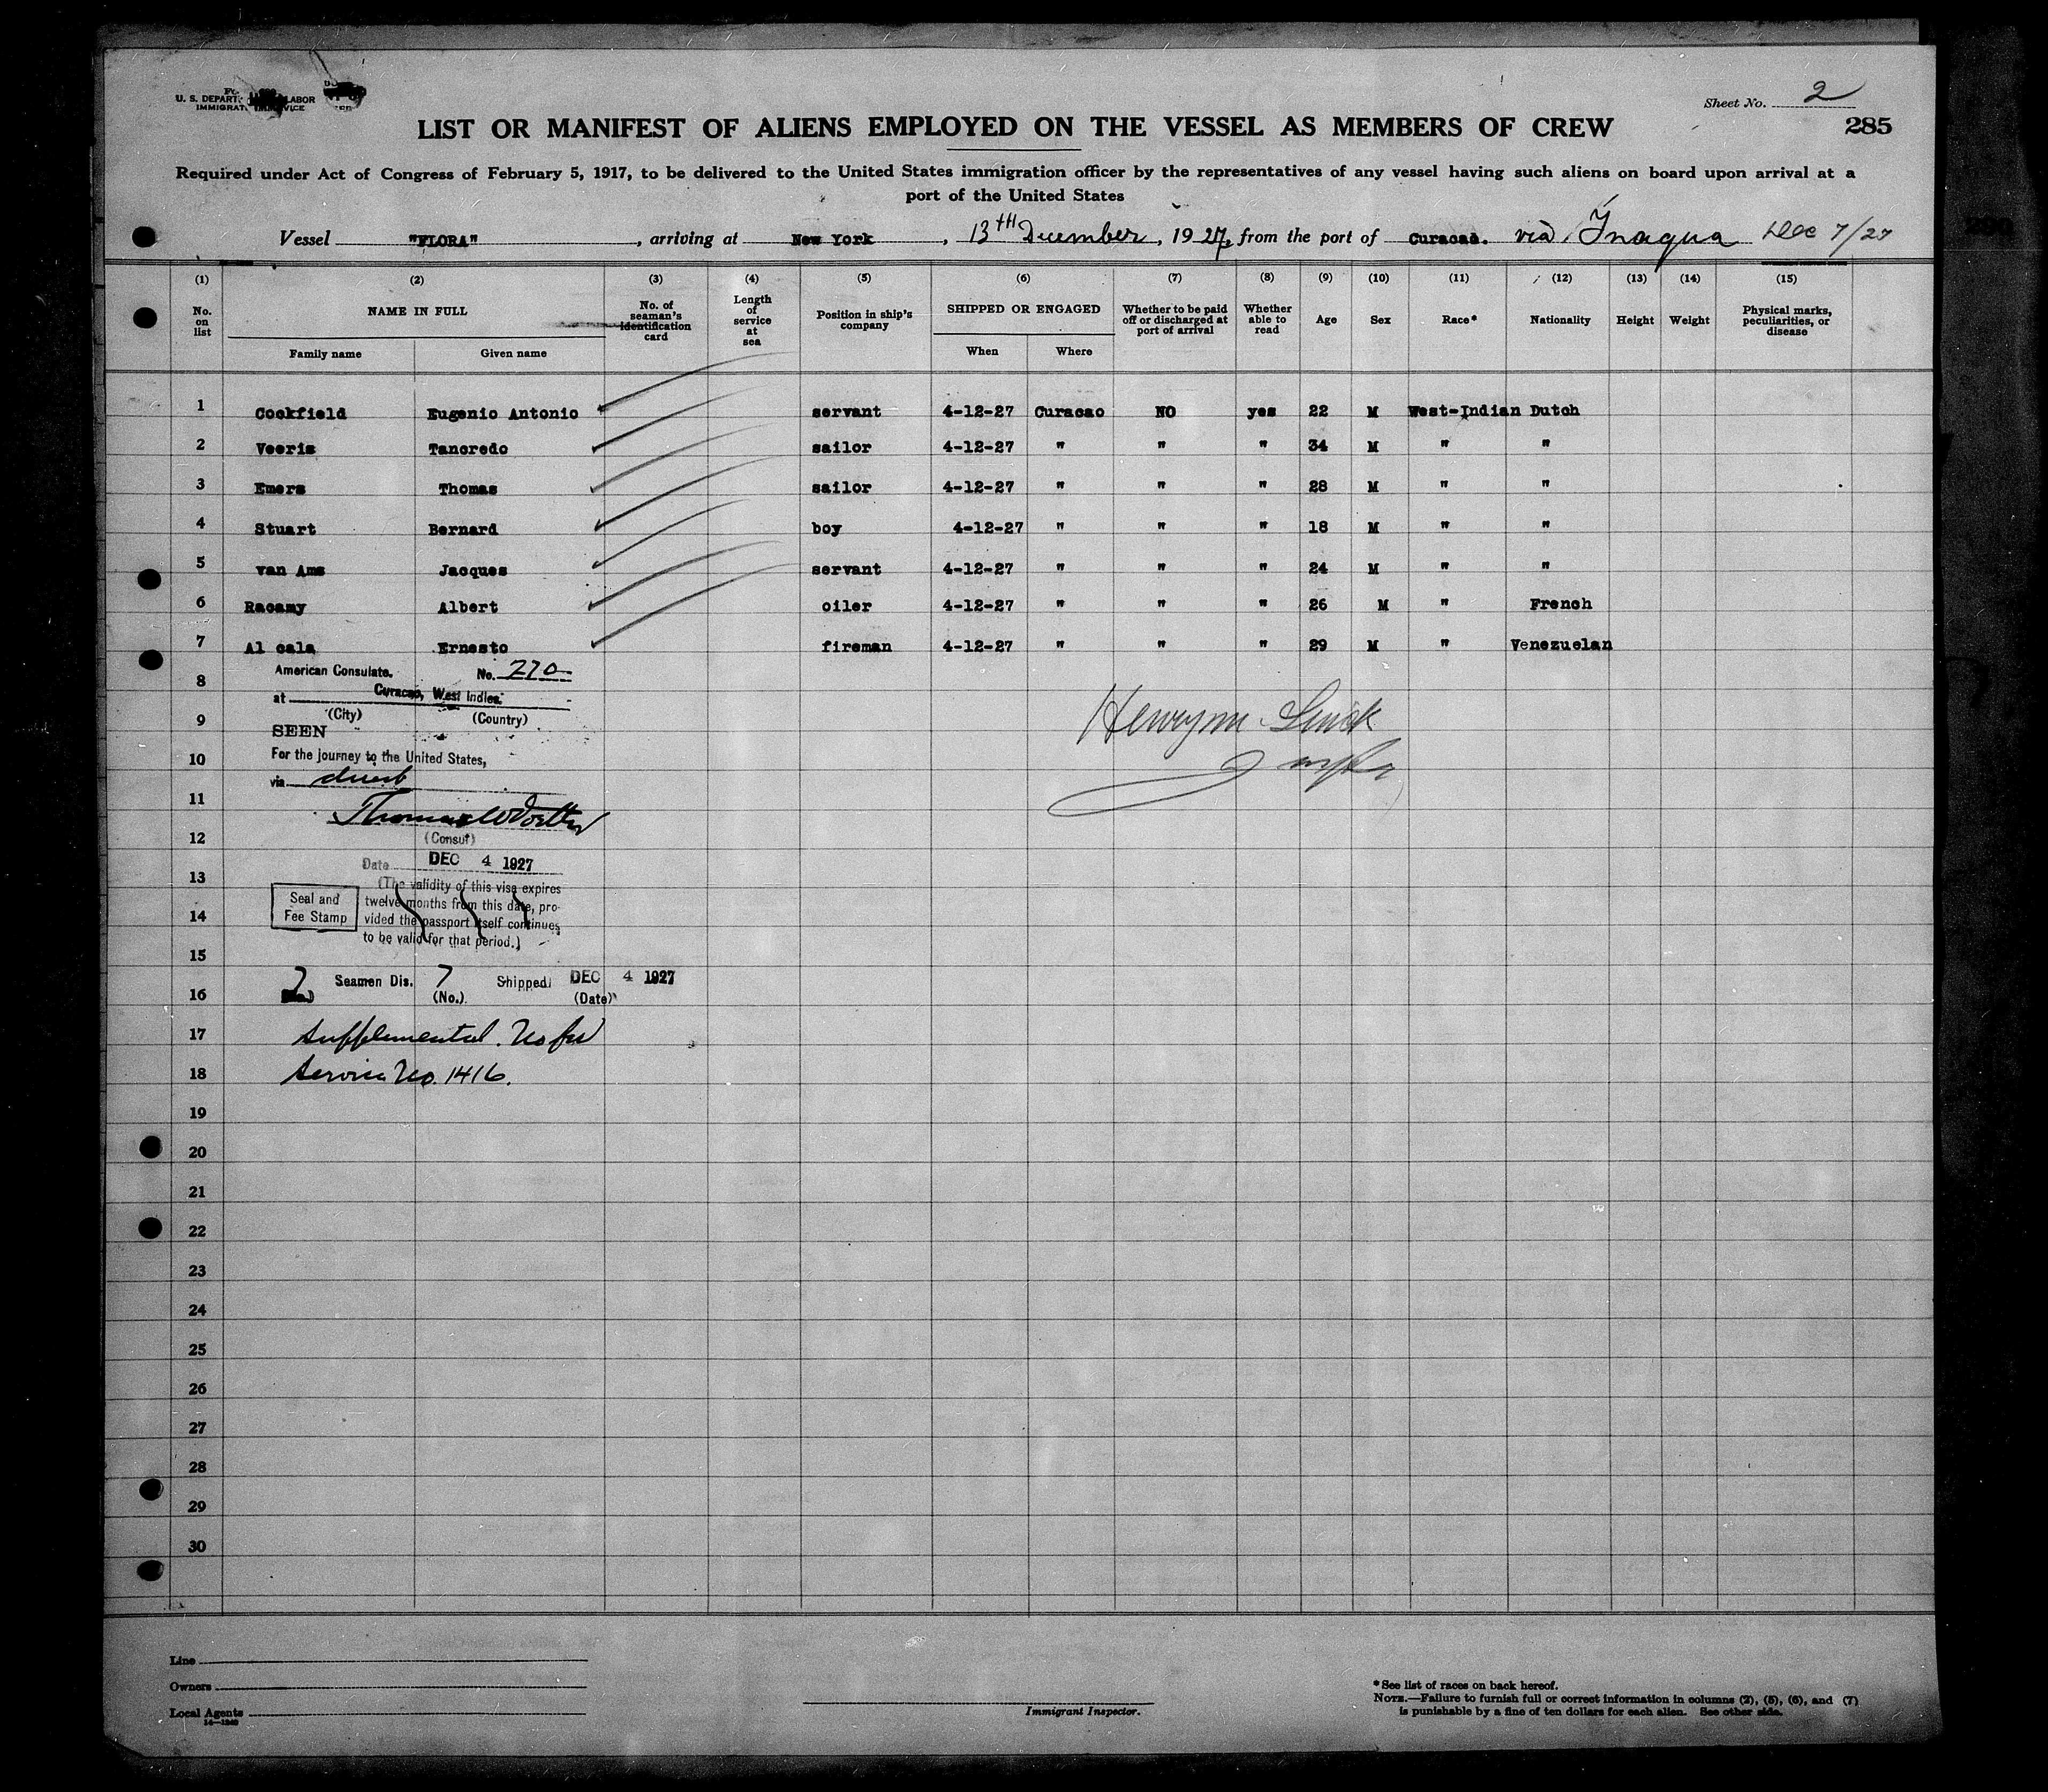 U. S. DEPART. LABOR
IMMIGRAT
Sheet No. 2
LIST OR MANIFEST OF ALIENS EMPLOYED ON THE VESSEL AS MEMBERS OF CREW
285
Required under Act of Congress of February 5, 1917, to be delivered to the United States immigration officer by the representatives of any vessel having such aliens on board upon arrival at a
port of the United States
Vessel "FLORA", arriving at New York, 13th December, 1927, from the port of Curacao. via Inagua Dec 7/27
(1) (2) (3) (4) (5) (6) (7) (8) (9) (10) (11) (12) (13) (14) (15)
No. on list NAME IN FULL No. of seaman's identification card Length of service at sea Position in ship's company SHIPPED OR ENGAGED Whether to be paid off or discharged at port of arrival Whether able to read Age Sex Race* Nationality Height Weight Physical marks, peculiarities, or disease
Family name Given name When Where
1 Cockfield Eugenio Antonio servant 4-12-27 Curacao NO yes 22 M West-Indian Dutch
2 Veeris Tancredo sailor 4-12-27 " " " 34 M " "
3 Emers Thomas sailor 4-12-27 " " " 28 M " "
4 Stuart Bernard boy 4-12-27 " " " 18 M " "
5 van Ams Jacques servant 4-12-27 " " " 24 M " "
6 Racamy Albert oiler 4-12-27 " " " 26 M " French
7 Al cala Ernesto fireman 4-12-27 " " " 29 M " Venezuelan
American Consulate. No. 270
8
at Curacao, West Indies.
(City) (Country)
9
SEEN
10 For the journey to the United States,
via direct
11
12 (Consul)
Date DEC 4 1927
13 (The validity of this visa expires
Seal and twelve months from this date, pro-
14 Fee Stamp vided the passport itself continues
to be valid for that period.)
15
7 Seamen Dis. 7 Shipped DEC 4 1927
16 (No.) (Date)
17 Supplemental. No fee
18 Service No. 1416.
19
20
21
22
23
24
25
26
27
28
29
30
Line
Owners
Local Agents
14—1240
Immigrant Inspector.
* See list of races on back hereof.
NOTE.—Failure to furnish full or correct information in columns (2), (5), (6), and (7)
is punishable by a fine of ten dollars for each alien. See other side.